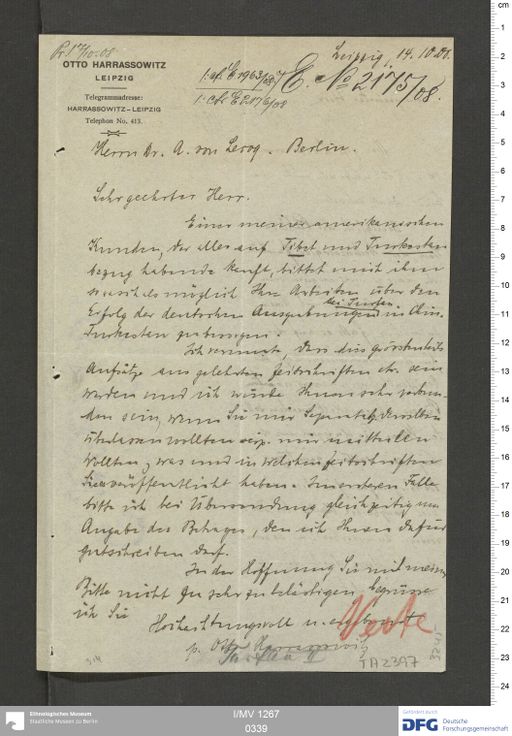 Pr. 17/10.08
OTTO HARRASSOWITZ
LEIPZIG
Telegrammadresse:
HARRASSOWITZ-LEIPZIG
Telephon No. 413.
Leipzig, 14. 10.08.
E. No 2175/08.
Herrn Dr. A. von Lecoq. Berlin.
Sehr geehrter Herr.
Einer meiner amerikanischen
Kunden, der alles auf Tibet und Turkestan
bezug habende kauft, bittet mich ihm
so rasch als möglich Ihre Arbeiten über den
bei Turfan.
Erfolg der deutschen Ausgrabungen in Chin.
Turkestan zu besorgen.
Ich vermute, dass dies grösstenteils
Aufsätze aus gelehrten Zeitschriften etc. sein
werden und ich würde Ihnen sehr verbun-
den sein, wenn Sie mir Separata derselben
überlassen wollten resp. mir mitteilen
wollten, was und in welchen Zeitschriften
Sie veröffentlicht haben. Im ersteren Falle
bitte ich bei Übersendung gleichzeitig um
Angabe des Betrages, den ich Ihnen dafür
gutschreiben darf.
In der Hoffnung Sie mit meiner
Bitte nicht zu sehr zu belästigen begrüsse
ich Sie
Hochachtungsvoll u. ergebenst
p. Otto Harrassowitz
Verte
TA 2397
I/MV 1267
0339
Ethnologisches Museum
Staatliche Museen zu Berlin
Gefördert durch
DFG Deutsche
Forschungsgemeinschaft
cm
1
2
3
4
5
6
7
8
9
10
11
12
13
14
15
16
17
18
19
20
21
22
23
24